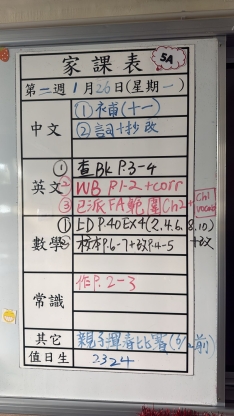 家課表 5A
第二週1月26日(星期一)
中文
①補(十一)
②詞+抄改
英文
①查Bk P.3-4
②WB P.1-2+corr
③已派FA範圍Ch2+ Ch1 vocab
數學
①ED P.40 EX4(2,4,6,8,10)
②校本P.6-7+改P.4-5 +改
常識
作P.2-3
其它
親子 比賽(5/2前)
值日生
23 24